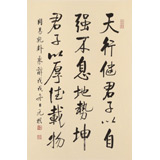 天行健君子以自
強不息地勢坤
君子以厚德載物